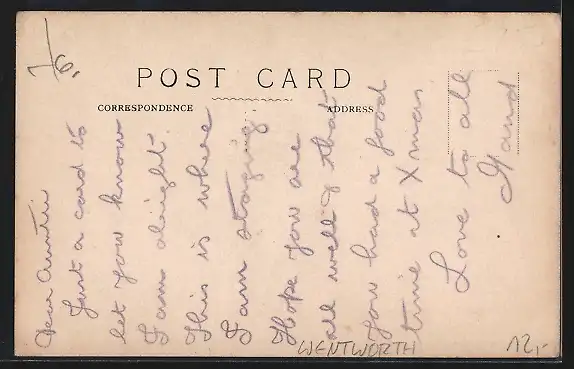 1/6.
POST CARD
CORRESPONDENCE
ADDRESS
Dear Auntie
Just a card to
let you know
I am alright.
This is where
I am staying
Hope you are
all well & that
you had a good
time at Xmas
Love to all
WENTWORTH
12,-